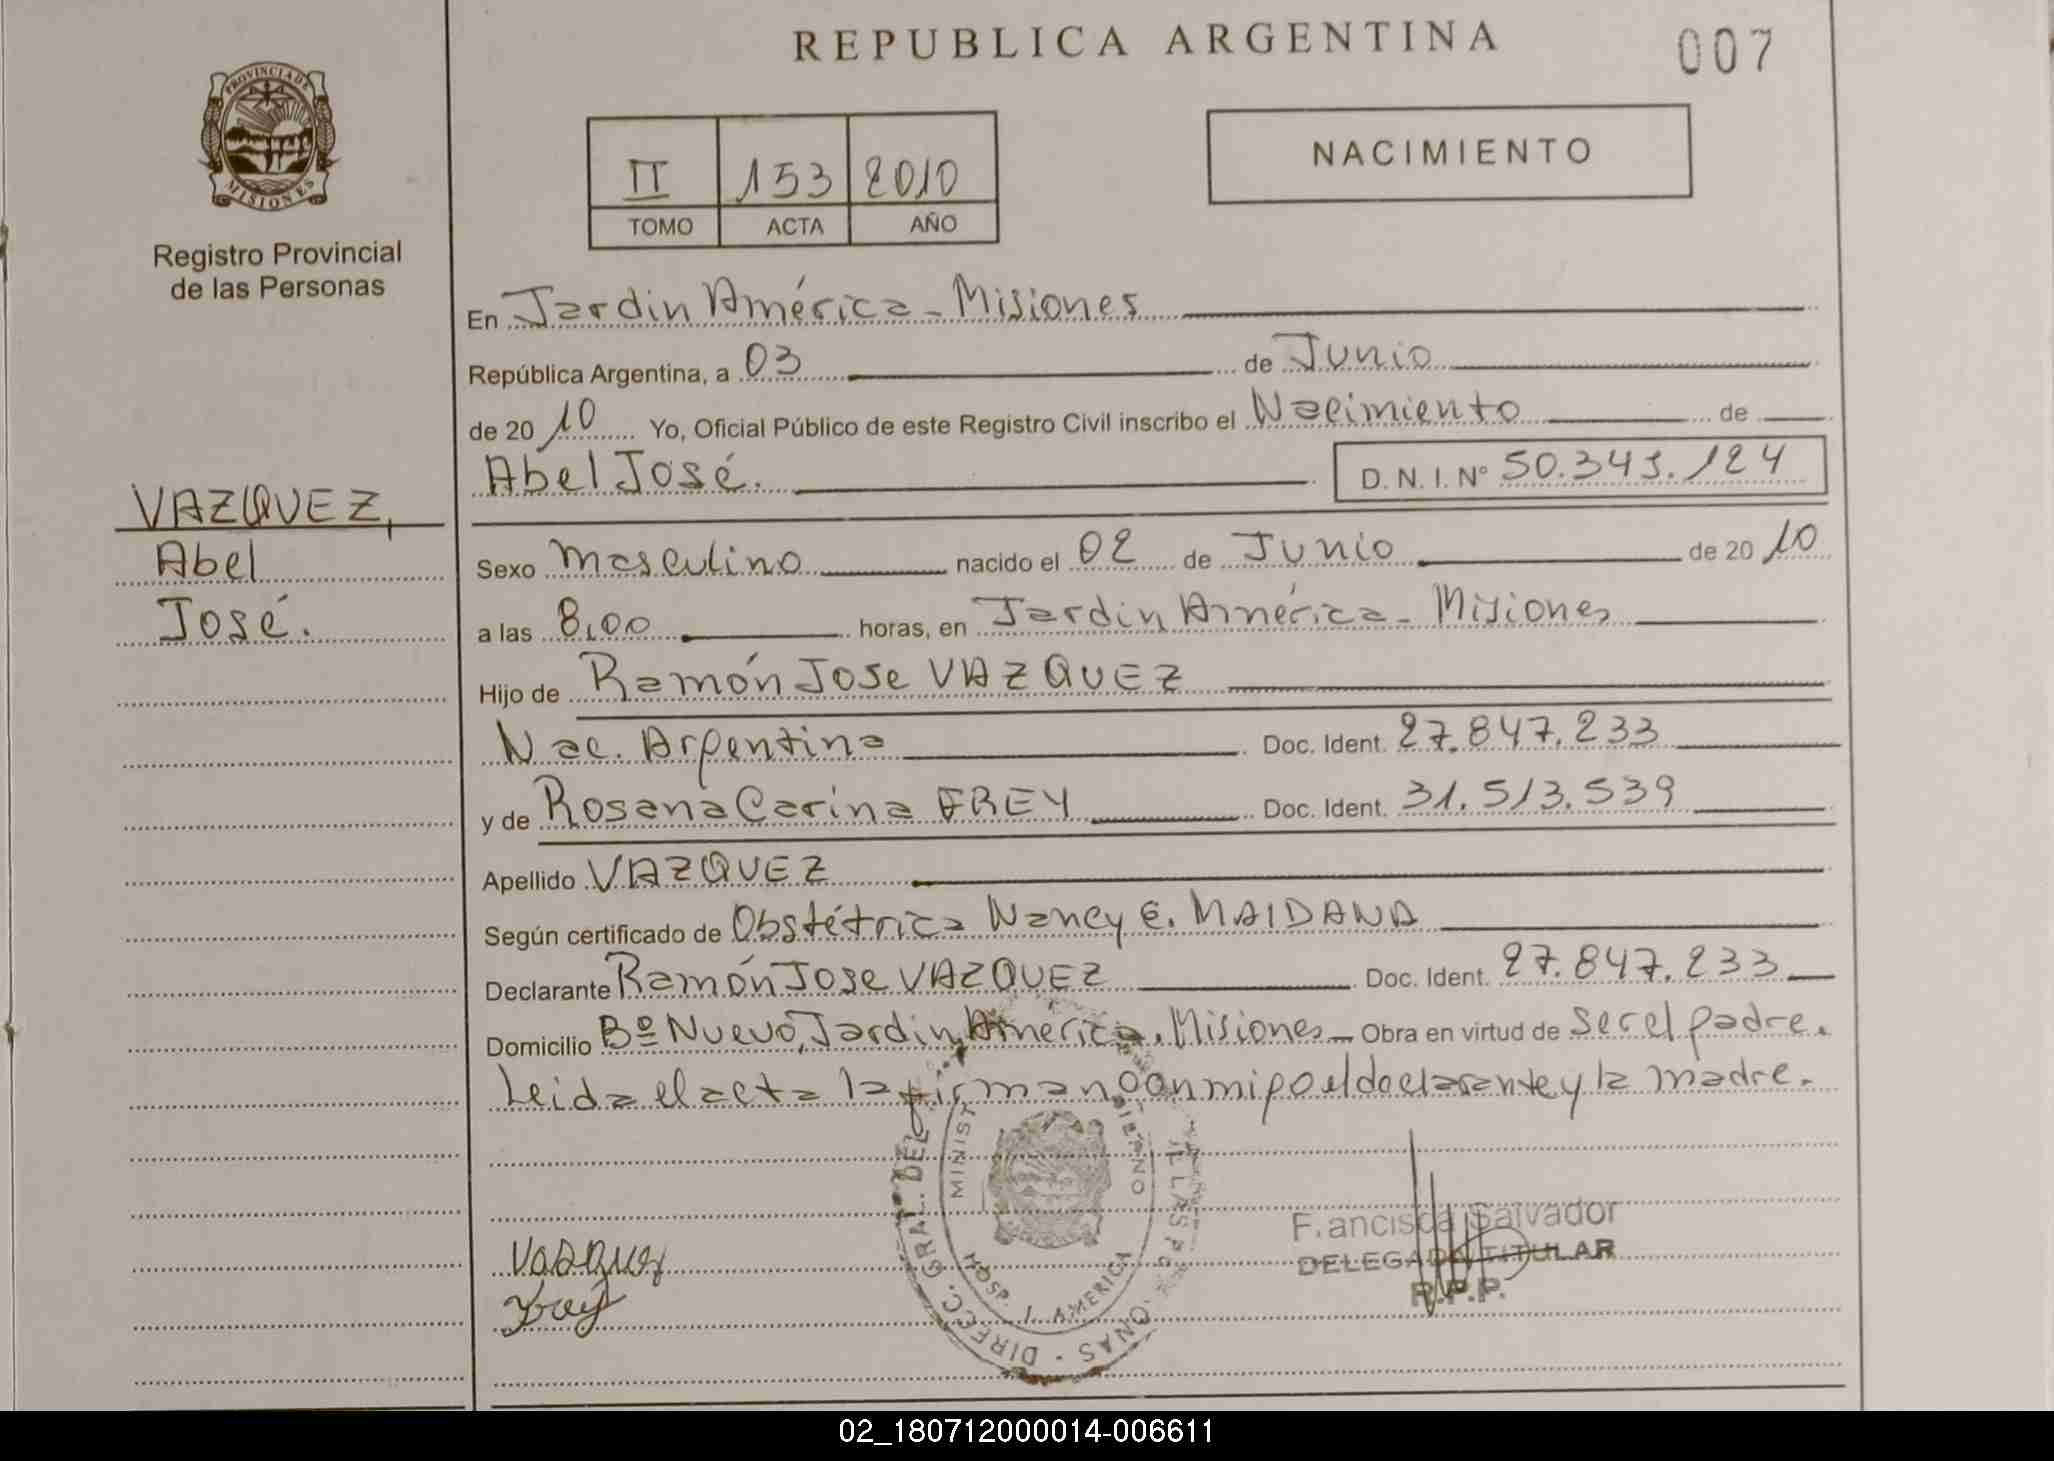 REPUBLICA ARGENTINA
007
PROVINCIA DE MISIONES
Registro Provincial
de las Personas
II 153 2010
TOMO ACTA AÑO
NACIMIENTO
En Jardin América - Misiones
República Argentina, a 03 de Junio
de 2010 Yo, Oficial Público de este Registro Civil inscribo el Nacimiento de
Abel José. D. N. I. Nº 50.343.124
VAZQUEZ,
Abel
José.
Sexo Masculino nacido el 02 de Junio de 2010
a las 8,00 horas, en Jardin América - Misiones
Hijo de Ramón Jose VAZQUEZ
Nac. Argentina Doc. Ident. 27.847.233
y de Rosana Carina FREY Doc. Ident. 31.513.539
Apellido VAZQUEZ
Según certificado de Obstétrica Nancy E. MAIDANA
Declarante Ramón Jose VAZQUEZ Doc. Ident. 27.847.233
Domicilio Bº Nuevo, Jardin América, Misiones - Obra en virtud de ser el padre.
Leida el acta la firman conmigo el declarante y la madre.
DIRECC. GRAL. DEL
MINIST
J. AMERICA
Vasquez
Frey
F.ancisca Salvador
DELEGADA TITULAR
R.P.P.
02_180712000014-006611